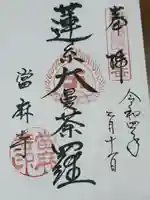 奉拝
令和四年
七月十一日
蓮糸大曼荼羅
當麻寺